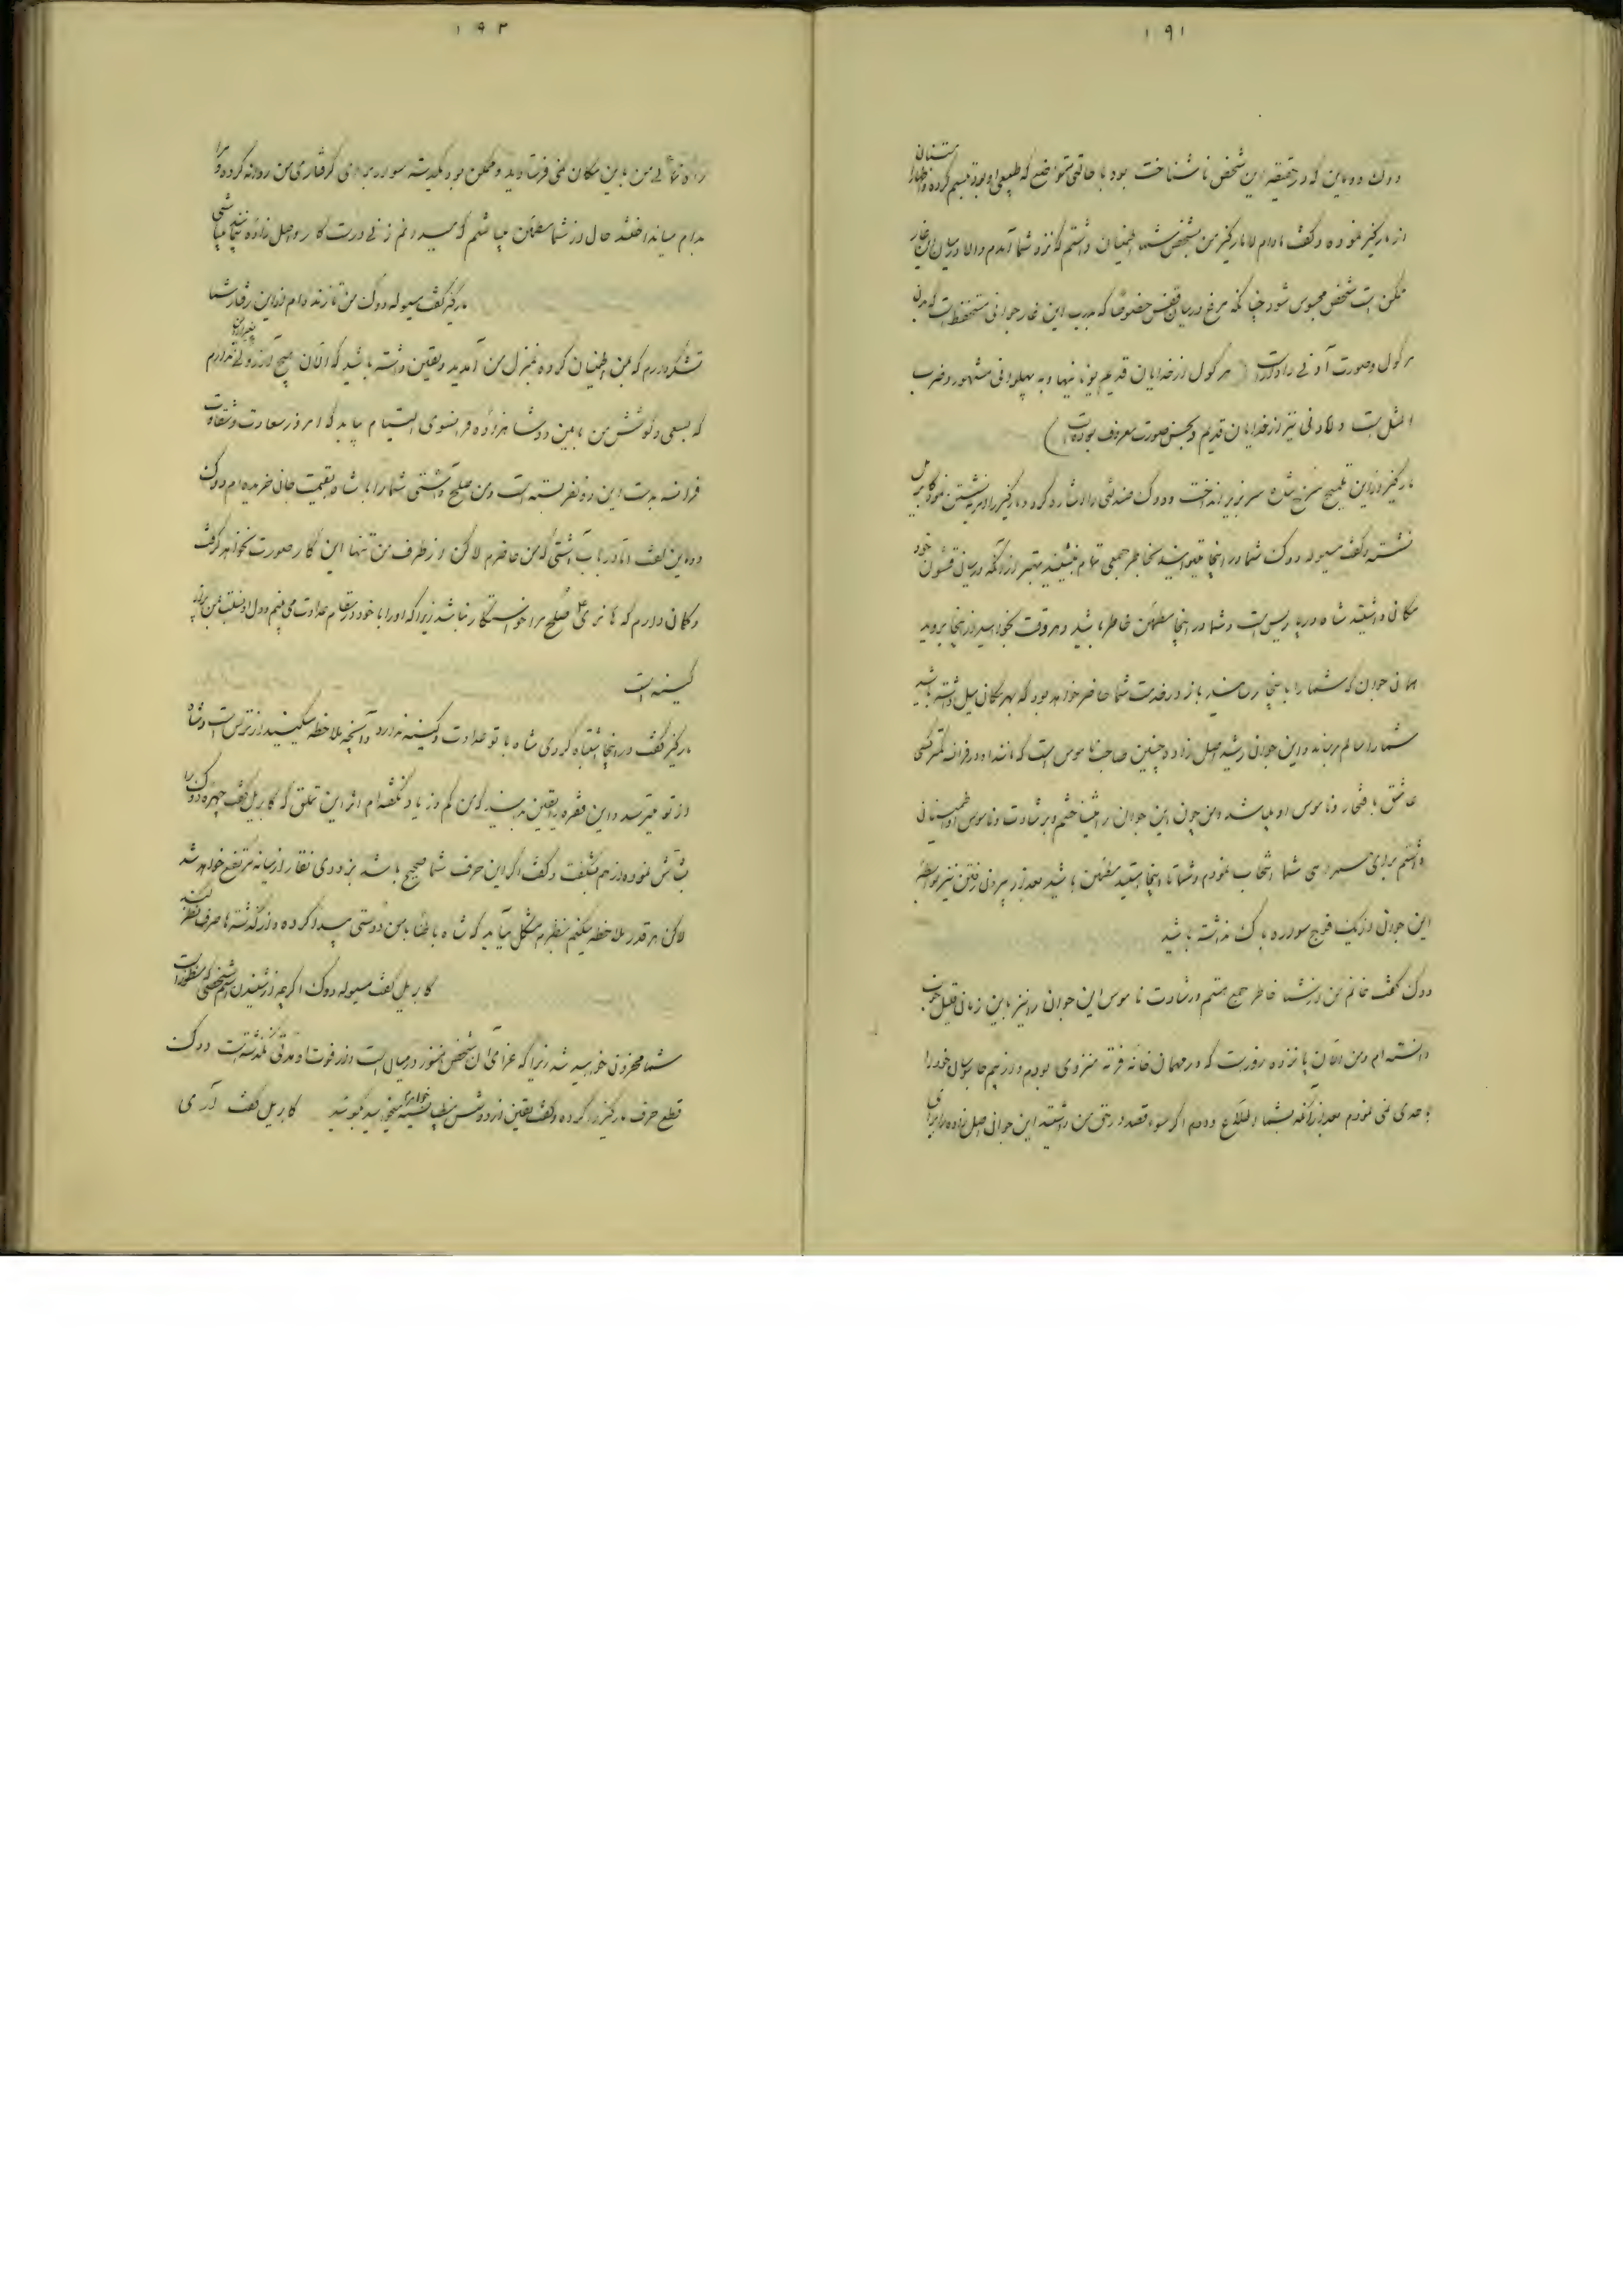 ۱۹۱
دوک دوماین که در حقیقه این شخص ناشناخت بود با حالتی متواضع که طبیعی او بود تبسم کرده و اظهار امتنان
از مارکیز نموده و گفت مادام لامارکیز من بشخص شما اطمینان داشتم که نزد شما آمدم والا در میان این غار
ممکن است شخص محبوس شود چنانکه مرغ در میان قفس خصوصاً که درب این غار جوانی مستحفظ است که بدن
هرکول و صورت آدنی را دارد است ( هرکول از خدایان قدیم یونانیها و به پهلوانی مشهور و ضرب
المثل است و آدنی نیز از خدایان قدیم و بحسن صورت معروف بوده است )
مارکیز از این تلمیح سرخ شده سر بزیر انداخت و دوک صندلی را اشاره کرد و مارکیز را امر به نشستن نمود کابریل
نشسته و گفت مسیو له دوک شما در اینجا میتوانید بخاطر جمعی تمام بنشینید بهتر از آنکه در میان قشون خود
مکان داشتید شاه در پاریس است و شما در اینجا مطمئن خاطر باشید و هر وقت بخواهید از اینجا بروید
همان جوان که شما را باینجا رسانید باز در خدمت شما حاضر خواهد بود که بهر مکان میل داشته باشید
شما را سالم برساند و این جوان رشید اصل زاده و چنین صاحب ناموس است که مانند او در فرانسه کمتر کسی
عاشق با افتخار و ناموس او میباشد و من چون این جوان را میشناختم و بر رشادت و ناموس او اطمینانی
داشتم برای همراهی شما انتخاب نمودم و شما تا اینجا هستید مطمئن باشید بعد از بیرون رفتن نیز بواسطه
این جوان از یک فوج سواره باک نداشته باشید
دوک گفت خانم من از شما خاطر جمع هستم و رشادت و ناموس این جوان را نیز باین زمان قلیل خوب
دانسته ام و من الان پانزده روز است که در مهمان خانه فرته منزوی بودم و از بیم جاسوسان خود را
باحدی نمی نمودم بعد از آنکه بشما اطلاع دادم اگر سوء قصد در حق من داشتید این جوان اصل زاده را برای
۱۹۲
راه نمائی من باین مکان نمی فرستادید و ممکن بود یکدسته سواره برای گرفتاری من روانه کرده و مرا
بدام میانداختند حال از شما مطمئن میباشم که میدانم زنی درست کار و اصل زاده نجیبه میباشی
مارکیز گفت مسیو له دوک من تا زنده ام از این رفتار شما
تشکر دارم که بمن اطمینان کرده بمنزل من آمدید و یقین داشته باشید که الان هیچ آرزوئی ندارم بغیر از این
که بسعی و کوشش من مابین دو شاهزاده فرانسوی التیام بیاید که امروز سعادت و شقاوت
فرانسه بدست این دو نفر بسته است و من صلح و آشتی شما را با شاه بقیمت جانی خریده ام دوک
دوماین گفت اما در باب آشتی که من حاضرم لاکن از طرف من تنها این کار صورت نخواهد گرفت
و گمان دارم که هانری صلح مرا خواستگار نباشد زیرا که او را با خود در مقام عداوت می بینم و دل او نسبت بمن پر از
کینه است
مارکیز گفت در اینجا اشتباه کردی شاه با تو عداوت و کینه ندارد و آنچه ملاحظه میکنید از ترس است و شاه
از تو میترسد و این فقره را یقین بدانید که من کم و زیاد نگفته ام از این تملق که کابریل گفت چهره دوک را
بشاش نموده از هم بشگفت و گفت اگر این حرف شما صحیح باشد بزودی نقار از میانه مرتفع خواهد شد
لاکن هر قدر ملاحظه میکنم بنظرم مشکل میآید که شاه باطناً با من دوستی پیدا کرده و از گذشته ها صرف نظر کند
کابریل گفت مسیو له دوک اگرچه از شنیدن اسم شخصی که منظور است
شما محزون خواهید شد زیرا که عزای آن شخص هنوز در میان است و از فوت او مدتی نگذشته است دوک
قطع حرف مارکیز را کرده و گفت یقین از دوشس مونپانسیه خواهرم میخواهید بگوئید کابریل گفت آری